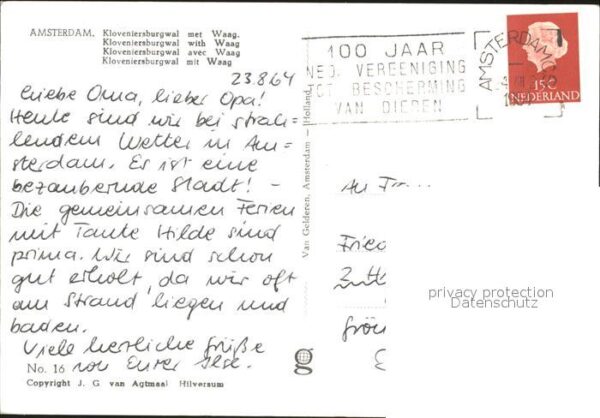 AMSTERDAM. Kloveniersburgwal met Waag.
Kloveniersburgwal with Waag
Kloveniersburgwal avec Waag
Kloveniersburgwal mit Waag
23.8.64
Liebe Oma, lieber Opa!
Heute sind wir bei strah-
lendem Wetter in Am-
sterdam. Es ist eine
bezaubernde Stadt! -
Die gemeinsamen Ferien
mit Tante Hilde sind
prima. Wir sind schon
gut erholt, da wir oft
am Strand liegen und
baden.
Viele herzliche Grüße
von Eurer Ilse.
No. 16
Copyright J. G van Agtmaal Hilversum
Van Gelderen, Amsterdam – Holland
100 JAAR
NED. VEREENIGING
TOT BESCHERMING
VAN DIEREN
AMSTERDAM
15c
NEDERLAND
An
Fried
privacy protection
Datenschutz
g